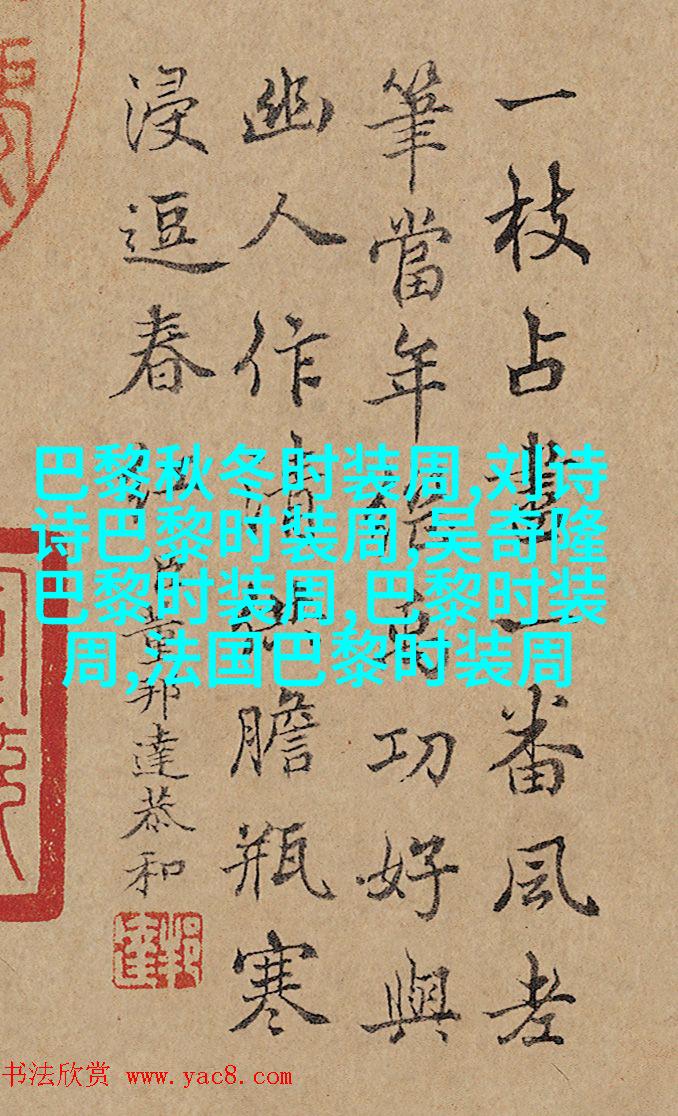 一枝占盡一番風老
筆當年為功好與
幽人作清供膽瓶寒
浸逗春紅
臣董邦達恭和
邦達
巴黎秋冬时装周,刘诗
诗巴黎时装周,吴奇隆
巴黎时装周,巴黎时装
周,法国巴黎时装周
书法欣赏 www.yac8.com